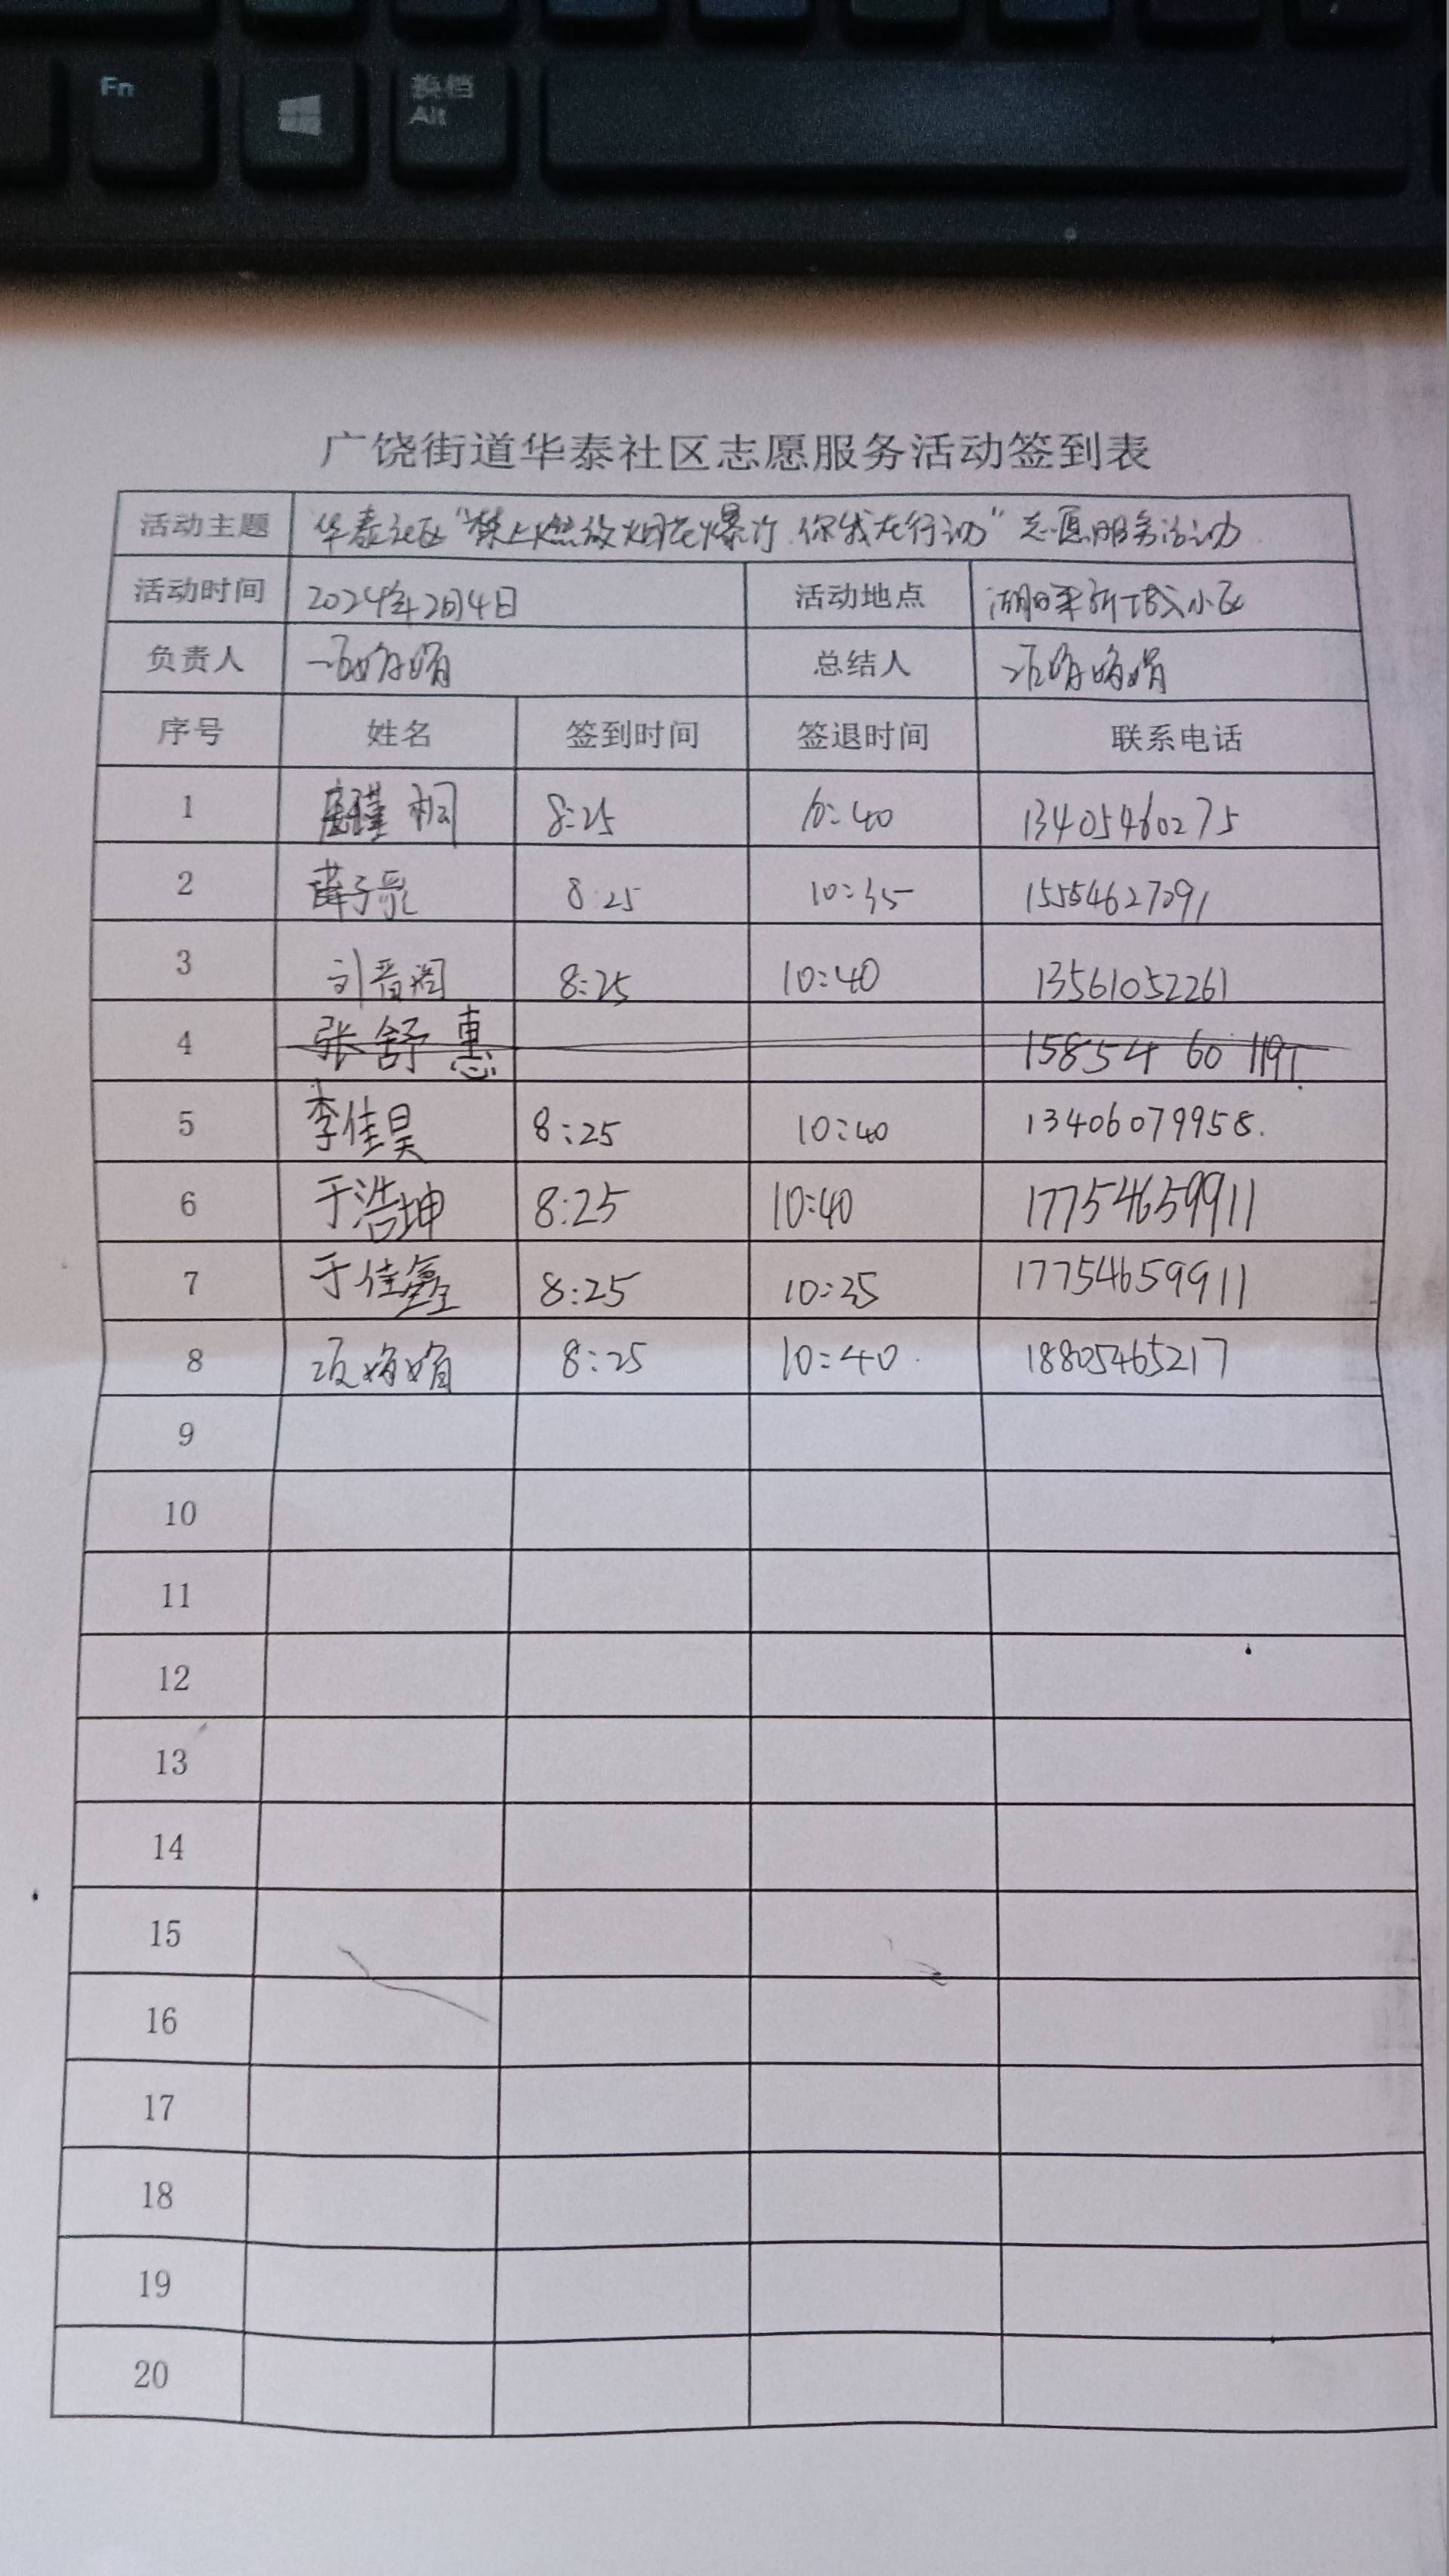 Fn
换档
Alt
广饶街道华泰社区志愿服务活动签到表
活动主题 华泰社区“禁止燃放烟花爆竹 你我在行动”志愿服务活动
活动时间 2024年2月4日 活动地点 小区
负责人 总结人
序号 姓名 签到时间 签退时间 联系电话
1 8:25 10:40 13405460275
2 薛子 8:25 10:35 15554627291
3 刘晋 8:25 10:40 13561052261
4 张舒惠 15854 60 119
5 李佳昊 8:25 10:40 13406079958.
6 于浩坤 8:25 10:40 17754659911
7 于佳鑫 8:25 10:35 17754659911
8 8:25 10:40. 18805465217
9
10
11
12
13
14
15
16
17
18
19
20